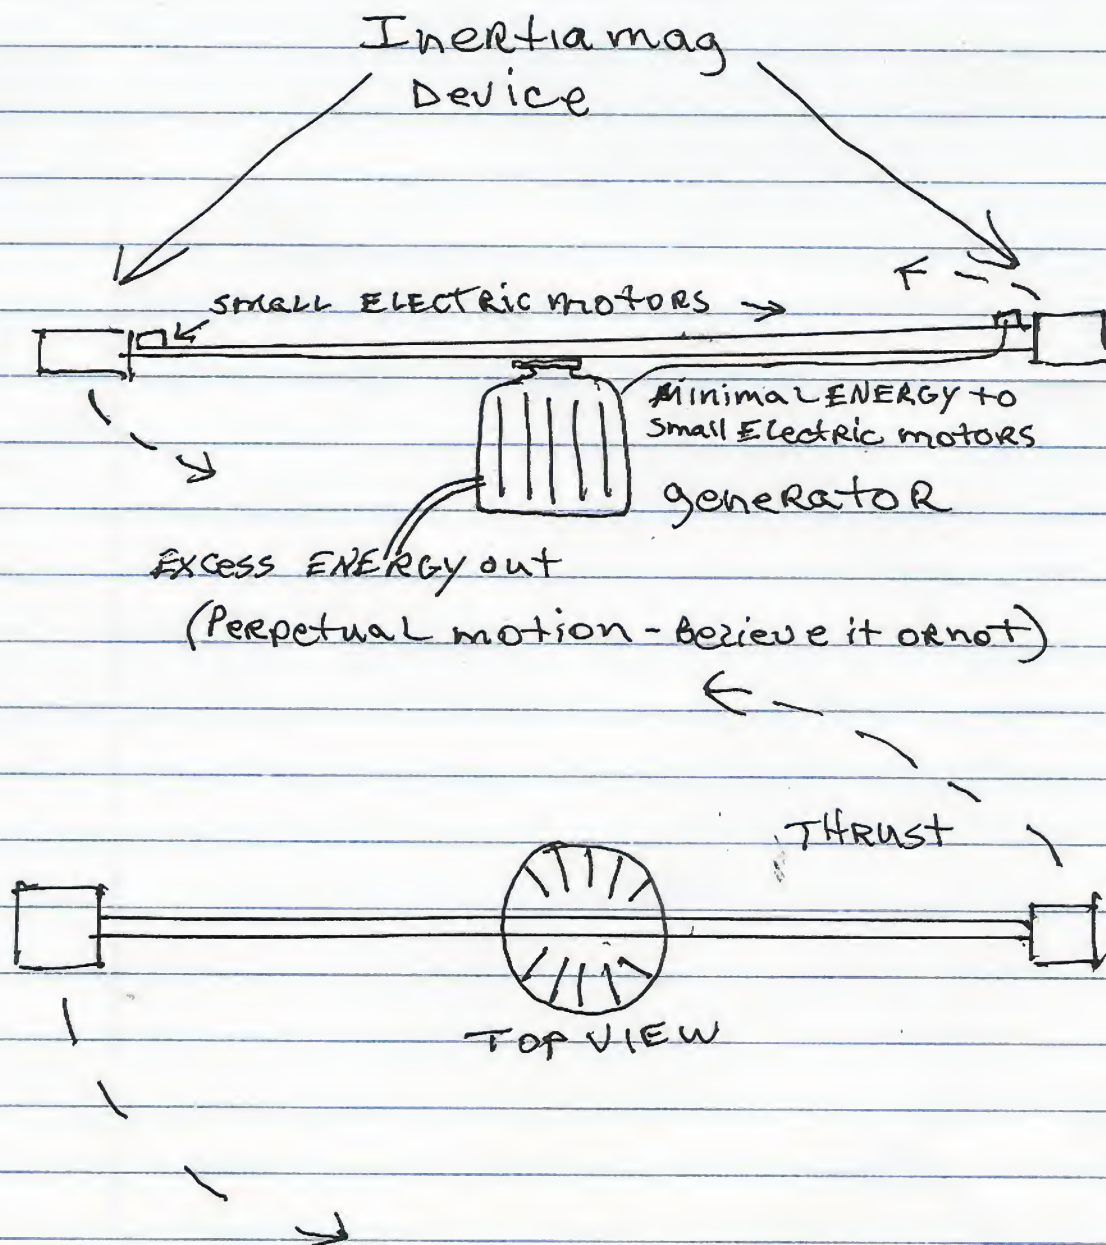 Inertia mag
Device
small ELECTRic motors
Minimal ENERGY to
small Electric motors
generatoR
Excess ENERGY out
(Perpetual motion - Believe it or not)
THRUSt
TOP VIEW